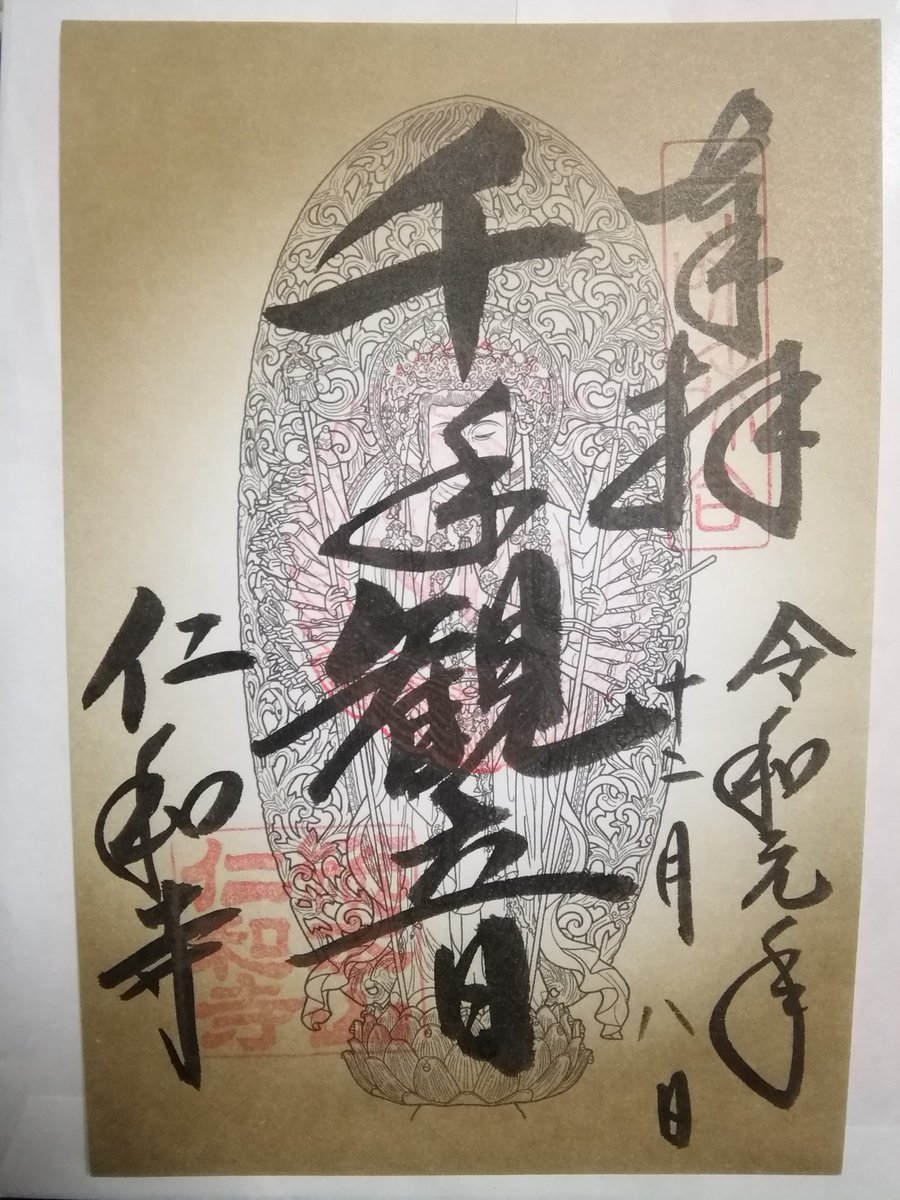 奉拝
令和元年
十二月八日
千手観音
仁和寺
仁和寺